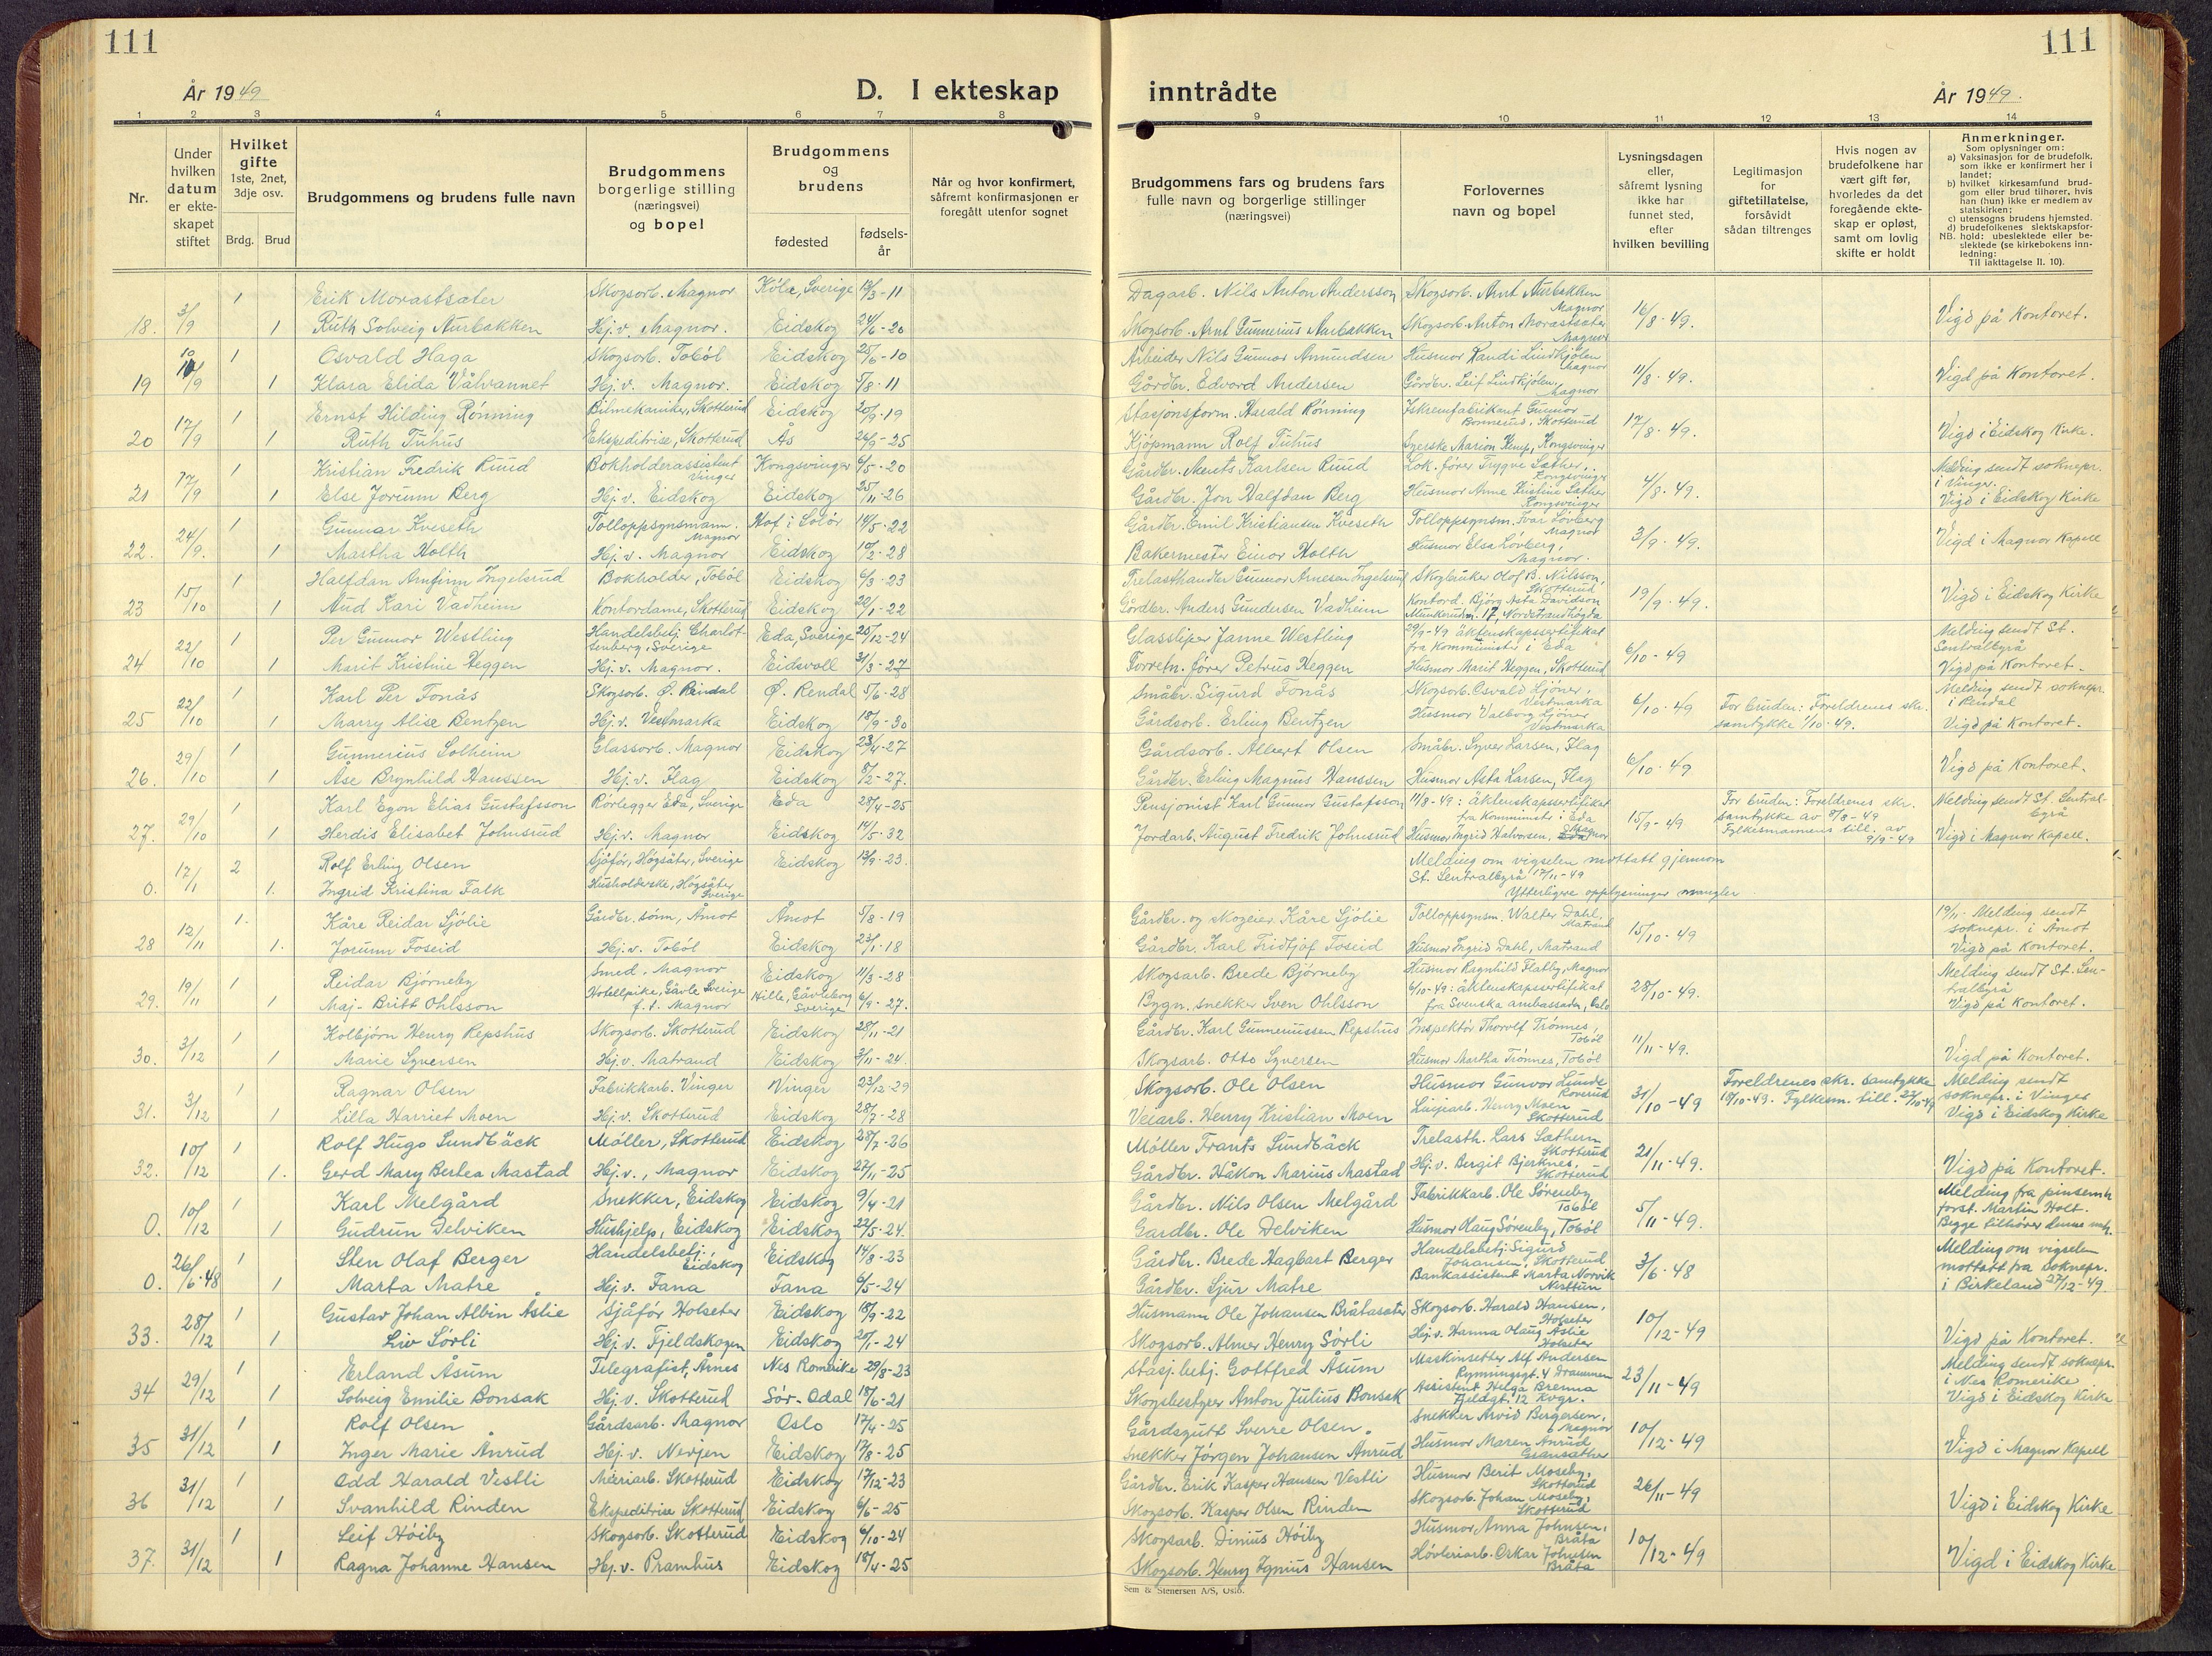 111
111
År 1949
D. I ekteskap
inntrådte
År 1949.
1 2 3 4 5 6 7 8 9 10 11 12 13 14
Nr.
Under
hvilken
datum
er ekte-
skapet
stiftet
Hvilket
gifte
1ste, 2net,
3dje osv.
Brdg. Brud
Brudgommens og brudens fulle navn
Brudgommens
borgerlige stilling
(næringsvei)
og bopel
Brudgommens
og
brudens
fødested
fødsels-
år
Når og hvor konfirmert,
såfremt konfirmasjonen er
foregått utenfor sognet
Brudgommens fars og brudens fars
fulle navn og borgerlige stillinger
(næringsvei)
Forlovernes
navn og bopel
Lysningsdagen
eller,
såfremt lysning
ikke har
funnet sted,
efter
hvilken bevilling
Legitimasjon
for
giftetillatelse,
forsåvidt
sådan tiltrenges
Hvis nogen av
brudefolkene har
vært gift før,
hvorledes da det
foregående ekte-
skap er opløst,
samt om lovlig
skifte er holdt
Anmerkninger.
Som oplysninger om:
a) Vaksinasjon for de brudefolk,
som ikke er konfirmert her i
landet;
b) hvilket kirkesamfund brud-
gom eller brud tilhører, hvis
han (hun) ikke er medlem av
statskirken;
c) utensogns brudens hjemsted.
d) brudefolkenes slektskapsfor-
NB. hold: ubeslektede eller be-
slektede (se kirkebokens inn-
ledning:
Til iakttagelse II. 10).
1 Erik Morastsæter Skogsarb. Magnor Köla, Sverige /3-11 Dagarb. Nils Anton Andersson Skogsarb. Arnt Aurbakken Magnor
18. 3/9 1 Ruth Solveig Aurbakken Hj.v. Magnor. Eidskog 24/6-20 Skogsarb. Arnt Gunnerius Aurbakken Skogsarb. Anton Morastsæter Magnor 16/8-49. Vigd på Kontoret.
1 Osvald Haga Skogsarb. Tobøl Eidskog 25/6-10 Arbeider Nils Gunnar Amundsen Husmor Randi Lindkjølen Magnor
19 10/9 1 Klara Elida Vålvannet Hj.v. Magnor. Eidskog 5/8-11 Gårdbr. Edvard Andersen Gårdbr. Leif Lindkjølen, Magnor 11/8-49. Vigd på Kontoret.
1 Ernst Hilding Rønning Bilmekaniker, Skotterud Eidskog -19 Stasjonsform. Harald Rønning Iskremfabrikant Gunnar Bonnerud, Skotterud
20 17/9 1 Ruth Tuhus Ekspeditrise, Skotterud Ås -25 Kjøpmann Rolf Tuhus Syerske Marion Kemp, Kongsvinger 17/8-49. Vigd i Eidskog Kirke.
1 Kristian Fredrik Ruud Bokholderassistent Vinger Kongsvinger 6/5-20 Gårdbr. Ments Karlsen Ruud Lok.fører Trygve Sæther, Kongsvinger Melding sendt soknepr. i Vinger.
21 17/9 1 Else Jorunn Berg Hj.v. Eidskog Eidskog 25/11-26 Gårdbr. Jon Halfdan Berg Husmor Anne Kristine Sæther Kongsvinger 4/8-49. Vigd i Eidskog Kirke
1 Gunnar Kveseth Tolloppsynsmann. Magnor Hof i Solør 14/5-22 Gårdbr. Emil Kristiansen Kveseth Tolloppsynsm. Ivar Løvberg Magnor
22. 24/9. 1 Martha Holth Hj.v. Magnor Eidskog /2-28 Bakermester Einar Holth Husmor Elsa Løvberg, Magnor. 3/9-49. Vigd i Magnor Kapell
1 Halfdan Arnfinn Ingelsrud Bokholder, Tobøl Eidskog 6/3-23 Trelasthandler Gunnar Arnesen Ingelsrud Skogbruker Olof B. Nilsson, Skotterud
23 15/10 1 Aud Kari Vadheim Kontordame, Skotterud Eidskog 22/1-22 Gårdbr. Anders Gundersen Vadheim Kontord. Bjørg Asta Davidson Munkerudv. 17, Nordstrandhøgda 19/9-49. Vigd i Eidskog Kirke
1 Per Gunnar Westling Handelsbetj. Charlot-tenberg, Sverige Eda, Sverige /12-24 Glassliper Janne Westling 29/9-49 äktenskapssertifikat fra Komminister i Eda Melding sendt St. Sentralbyrå
24 22/10 1 Marit Kristine Heggen Hj.v. Magnor. Eidsvoll 31/3-27 Forretn.fører Petrus Heggen Husmor Marit Heggen, Skotterud 6/10-49 Vigd på Kontoret.
1 Karl Per Fonås Skogsarb. Ø. Rendal Ø. Rendal 5/6-28 Småbr. Sigurd Fonås Skogsarb. Osvald Ljøner, Vestmarka Melding sendt soknepr. i Rendal
25 22/10 1 Marry Alise Bentzen Hj.v. Vestmarka Eidskog 18/9-30 Gårdsarb. Erling Bentzen Husmor Valborg Ljøner Vestmarka 6/10-49 For bruden: Foreldrenes skr. samtykke 1/10-49. Vigd på Kontoret.
1 Gunnerius Solheim Glassarb. Magnor Eidskog 23/4-27 Gårdsarb. Albert Olsen Småbr. Syver Larsen, Flag
26. 29/10 1 Åse Brynhild Hanssen Hj.v. Flag Eidskog 8/2-27. Gårdbr. Erling Magnus Hanssen Husmor Asta Larsen, Flag 6/10-49 Vigd på Kontoret.
1 Karl Egon Elias Gustafsson Rørlegger Eda, Sverige Eda 28/4-25 Pensjonist Karl Gunnar Gustafsson 11/8-49: äktenskapssertifikat fra Komminist. i Eda For bruden: Foreldrenes skr. samtykke av 8/8-49 Melding sendt St. Sentral-byrå
27. 29/10 1 Herdis Elisabet Johnsrud Hj.v. Magnor Eidskog 14/5-32 Jordarb. August Fredrik Johnsrud Husmor Ingrid Halvorsen, Magnor 15/9-49 Fylkesmannens till. av 9/9-49 Vigd i Magnor Kapell.
2 Rolf Erling Olsen Sjåfør, Högsäter, Sverige Eidskog 19/9-23. Melding om vigselen mottatt gjennom
0. 17/1 1. Ingrid Kristina Falk Husholderske, Högsäter Sverige St. Sentralbyrå 17/11-49 Ytterligere opplysninger mangler
1. Kåre Reidar Sjølie Gårdbr. sønn, Åmot Åmot 5/8-19 Gårdbr. og skogeier Kåre Sjølie Tolloppsynsm. Walter Dahl, Matrand 19/11- Melding sendt soknepr. i Åmot
28 12/11 1. Jorunn Foseid Hj.v. Tobøl Eidskog 23/1-18 Gårdbr. Karl Fridtjof Foseid Husmor Ingrid Dahl, Matrand 15/10-49 Vigd på Kontoret.
1 Reidar Bjørneby Smed, Magnor Eidskog 11/3-28 Skogsarb. Brede Bjørneby Husmor Ragnhild Flatby, Magnor Melding sendt St. Sen-tralbyrå
29. 19/11 1 Maj-Britt Ohlsson Hotellpike, Gävle Sverige f.t. Magnor Hille, Gävleborg Sverige 6/9-27. Bygn. snekker Sven Ohlsson 6/10-49: äktenskapssertifikat fra Svenska ambassaden, Oslo 28/10-49. Vigd på Kontoret.
1 Kolbjørn Henry Repshus Skogsarb. Skotterud Eidskog 28/11-21 Gårdbr. Karl Gunneriussen Repshus Inspektør Thorolf Trønnes, Tobøl
30. 3/12 1 Marie Syversen Hj.v. Matrand Eidskog 3/11-24. Skogsarb. Otto Syversen Husmor Martha Trønnes, Tobøl 11/11-49. Vigd på Kontoret.
1 Ragnar Olsen Fabrikkarb. Vinger Vinger 23/2-29 Skogsarb. Ole Olsen Husmor Gunvor Lunde Foreldrenes skr. samtykke Melding sendt soknepr. i Vinger
31. 3/12 1 Lilla Harriet Moen Hj.v. Skotterud Eidskog 28/7-28 Veiarb. Henry Kristian Moen Linjearb. Henry Moen Skotterud 31/10-49 /10-49. Fylkesm. till. 22/10-49 Vigd i Eidskog Kirke
1 Rolf Hugo Sundbäck Møller, Skotterud Eidskog 28/7-26 Møller Frants Sundbäck Trelasth. Lars Sæthern Skotterud
32. 10/12 1. Gerd Mary Berlea Mastad Hj.v., Magnor Eidskog 27/1-25 Gårdbr. Håkon Marius Mastad Hj.v. Bergit Bjerknes, Skotterud 21/11-49. Vigd på Kontoret.
1 Karl Melgård Snekker, Eidskog Eidskog 9/4-21 Gårdbr. Nils Olsen Melgård Fabrikkarb. Ole Sørenby Tobøl Melding fra pinsemh. forst. Martin Holt.
0. 10/12 1 Gudrun Delviken Hushjelp, Eidskog Eidskog 22/5-24. Gardbr. Ole Delviken Husmor Haug Sørenby, Tobøl 5/11-49. Begge tilhører denne mh.
1 Sten Olaf Berger Handelsbetj., Eidskog Eidskog 14/8-23 Gårdbr. Brede Hagbart Berger Handelsbetj. Sigurd Johansen, Skotterud Melding om vigselen mottatt fra soknepr.
0. 26/6-48 1 Marta Matre Hj.v. Fana Fana 6/5-24 Gårdbr. Sjur Matre Bankassistent Marta Norvik Nesttun 3/6-48 i Birkeland 27/12-49.
1 Gustav Johan Albin Åslie Sjåfør Holseter Eidskog 18/9-22 Husmann Ole Johansen Bråtasæter Skogsarb. Harald Hansen, Holseter
33. 28/12 1 Liv Sørli Hj.v. Fjeldskogen Eidskog 21/1-24 Skogsarb. Almer Henry Sørli Hj.v. Hanna Olaug Åslie Holseter 10/12-49 Vigd på Kontoret.
1 Erland Åsum Telegrafist, Årnes Nes Romerike 29/8-23 Stasj.betj. Gottfred Åsum Maskinsetter Alf Andersen Rymningsgt. 4 Drammen Melding sendt soknepr. i Nes Romerike
34 29/12 1 Solveig Emilie Bonsak Hj.v. Skotterud Sør-Odal 18/6-21 Skogsbestyrer Anton Julius Bonsak Assistent Helga Brenna Fjeldgt. 12 Kvgr. 23/11-49 Vigd i Eidskog Kirke
1 Rolf Olsen Gårdsarb. Magnor Oslo 17/4-25 Gårdsgutt Sverre Olsen Snekker Arvid Bergersen, Magnor
35 31/12 1 Inger Marie Ånrud Hj.v. Nevjen Eidskog 17/8-25 Snekker Jørgen Johansen Ånrud Husmor Maren Ånrud 10/12-49 Vigd i Magnor Kapell
1 Odd Harald Vestli Meieriarb. Skotterud Eidskog 17/12-23 Gårdbr. Erik Kasper Hansen Vestli Husmor Berit Moseby, Skotterud
36 31/12 1 Svanhild Rinden Ekspeditrise Skotterud Eidskog 6/1-25 Skogsarb. Kasper Olsen Rinden Skogsarb. Johan Moseby, Skotterud 26/11-49 Vigd i Eidskog Kirke
1 Leif Høiby Skogsarb. Skotterud Eidskog 6/10-24 Skogsarb. Dinius Høiby Husmor Anna Johnsen, Bråta
37. 31/12 1 Ragna Johanne Hansen Hj.v. Pramhus Eidskog 18/4-25 Skogsarb. Henry Hansen Høvleriarb. Oskar Johnsen Bråta 10/12-49 Vigd i Eidskog Kirke
Sem & Stenersen A/S, Oslo.